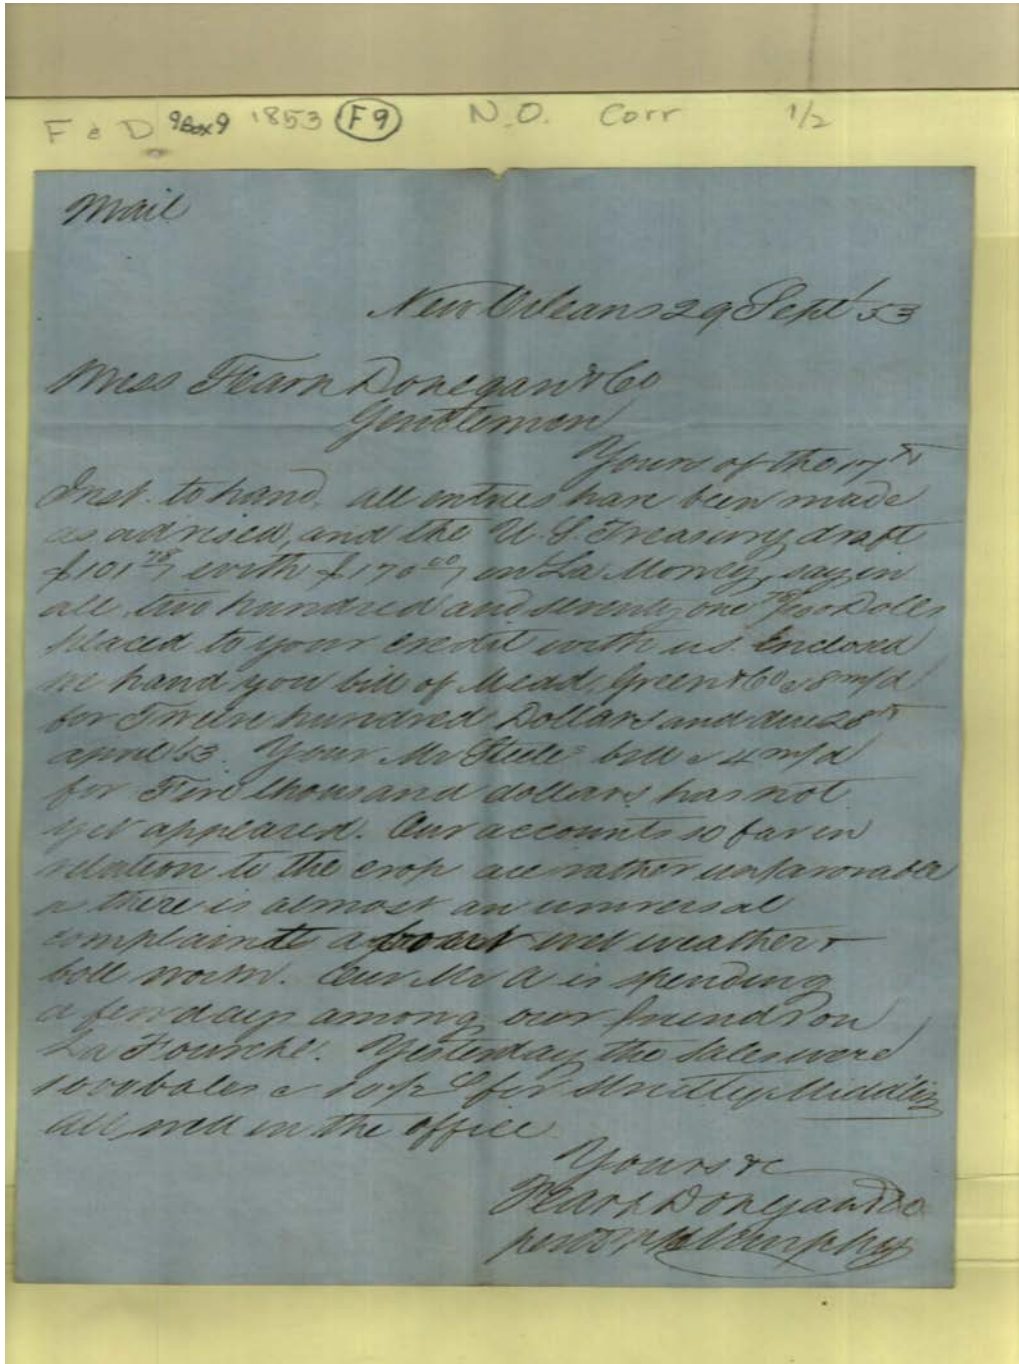 F & D Box 9 1853 F9 N.O. Corr 1/2
Mail
New Orleans 29 Sept '53
Mess Fearn Donegan & Co
Gentlemen
Yours of the 17th
Inst. to hand, all entries have been made
as advised, and the U.S. Treasury draft
$101 78/ with $170 00/ in La Money, say in
all, two hundred and seventy one 78/100 Dolls
placed to your credit with us. Enclosed
we hand you bill of Mead, Green & Co a 8 m/d
for Twelve hundred Dollars and due 28th
april 53. Your Mr Steele's bill a 4 m/d
for Five thousand dollars has not
yet appeared. Our accounts so far in
relation to the crop are rather unfavorable
as there is almost an universal
complaint wet weather &
boll worm. Our Mr A is spending
a few days among our friends on
La Fourche. Yesterday the sales were
1000 bales a 10 1/2 for Strictly Middling
All well in the office
Yours &c
Fearn Donegan & Co
Murphy